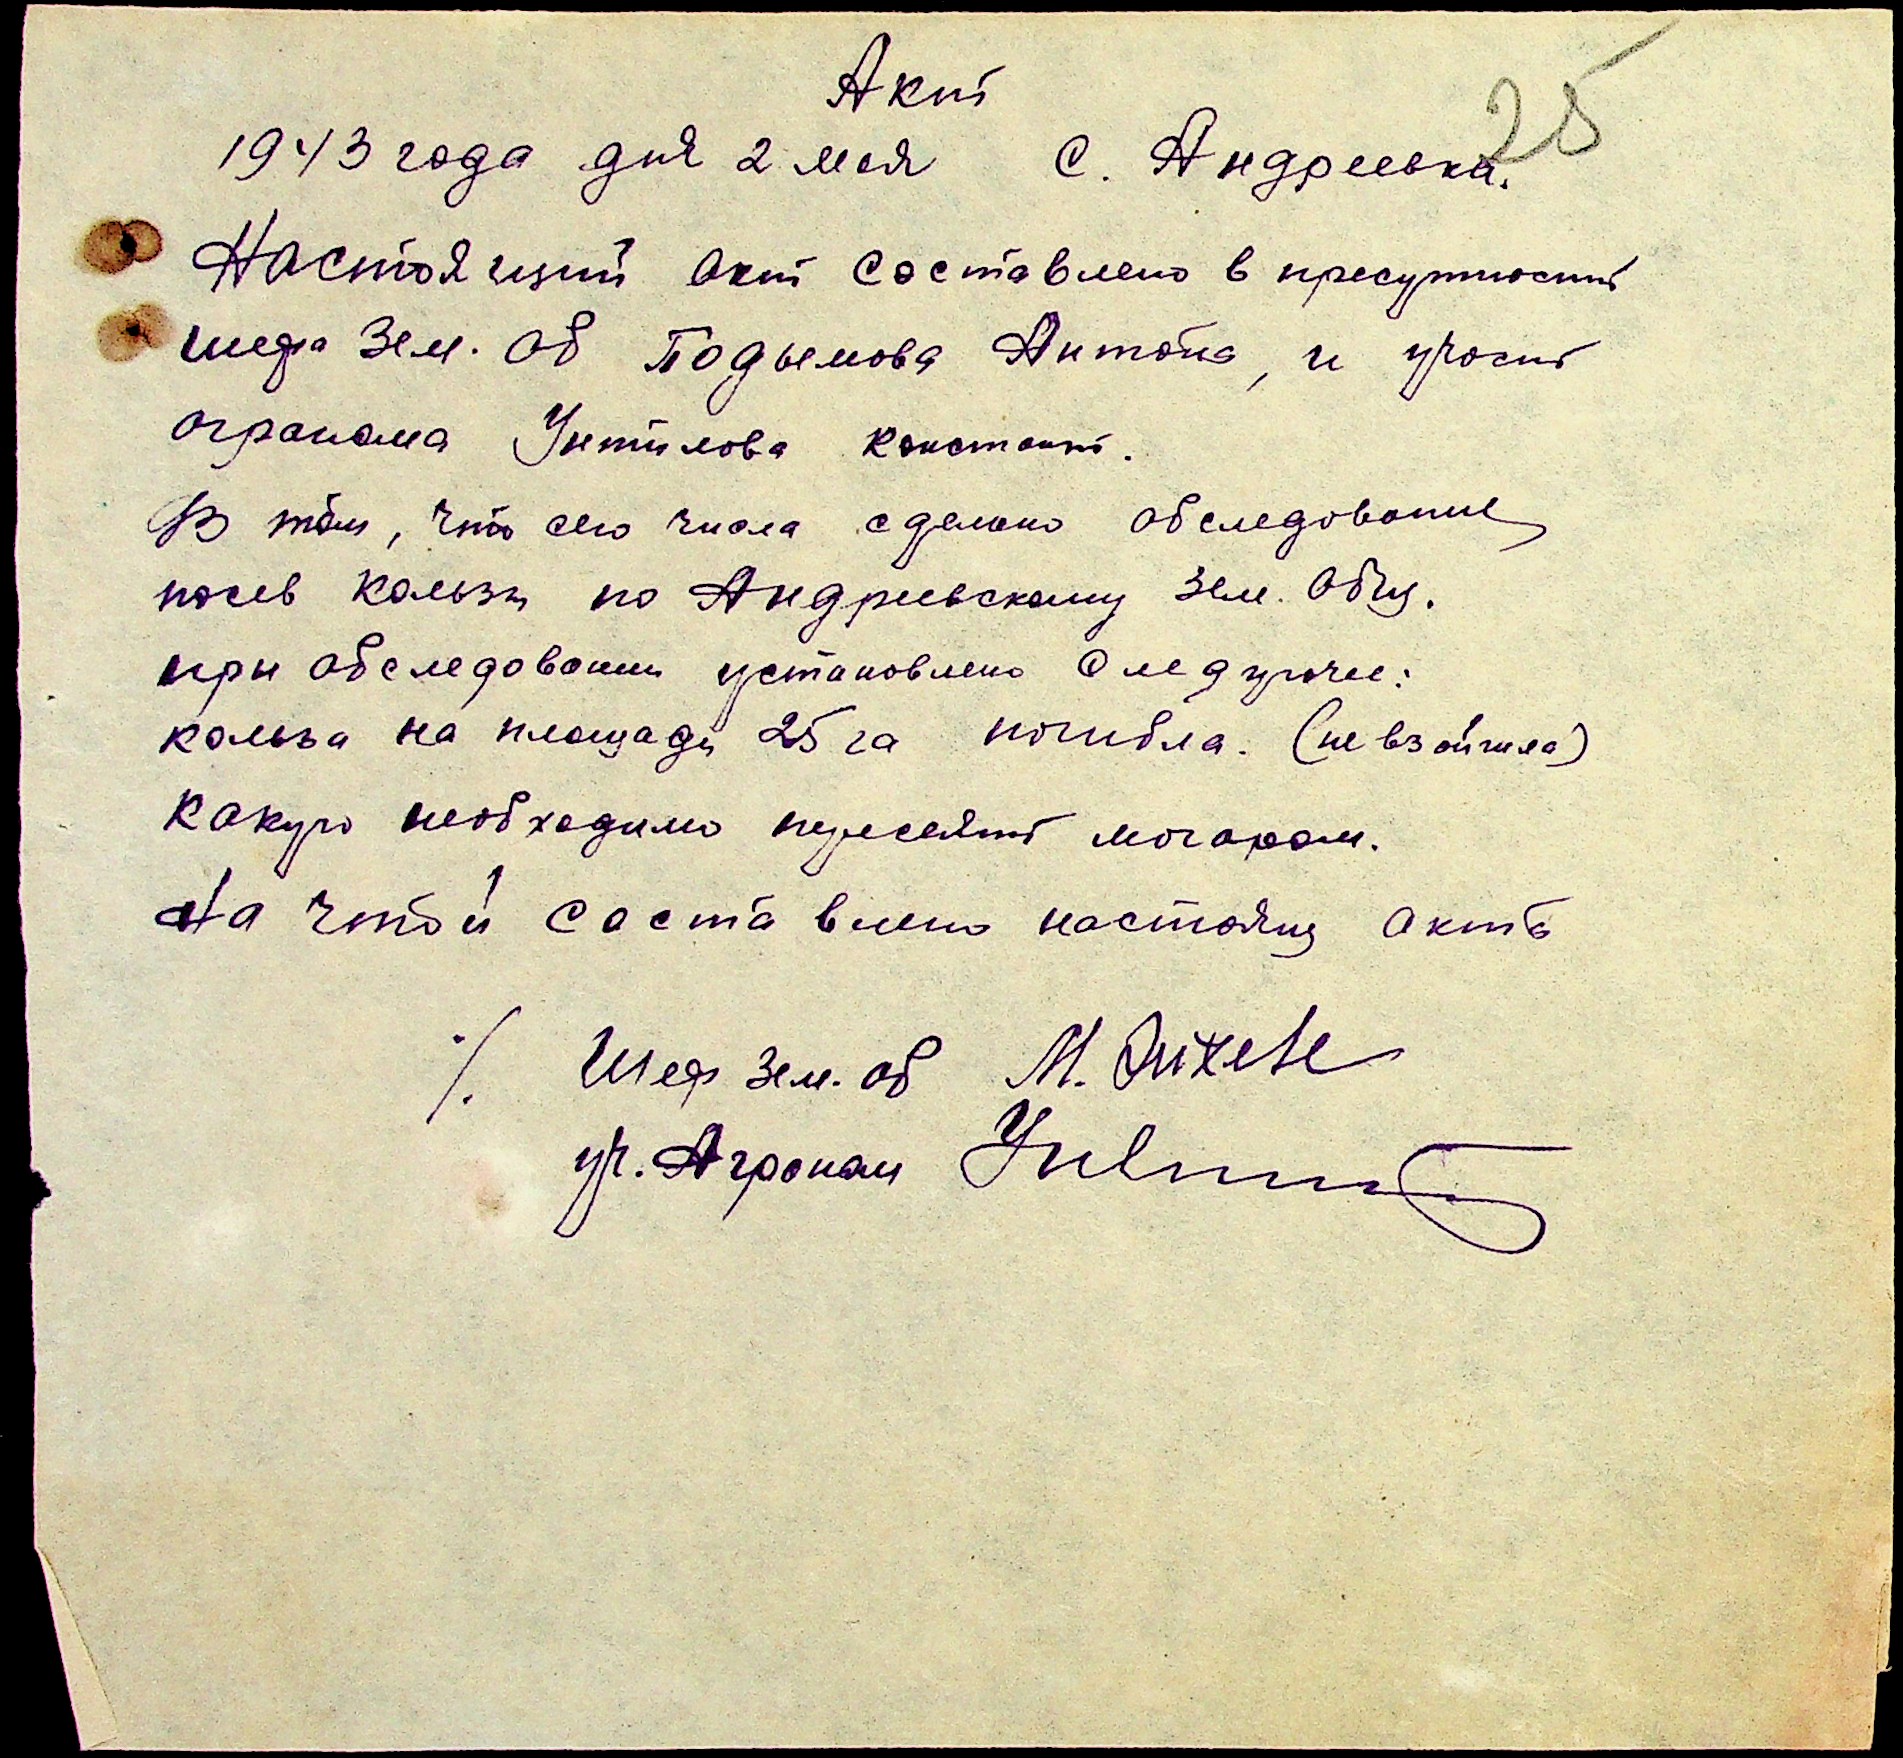 25
Акт
1943 года дня 2 мая с. Андреевка.
Настоящий акт составлено в пресутност
шефа Зем. Об Подымова Антона, и участ
агронома Унтилова Констант.
В том, что сего числа сделано обследование
посев кользы по Андреевскому Зем. Общ.
при обследовании установлено следуюче:
кольза на площади 25 га погибла. (не взойшла)
какую необходимо пересеять могаром.
На чтой составлено настоящ актъ
/. Шеф Зем. об М.
уч. Агроном